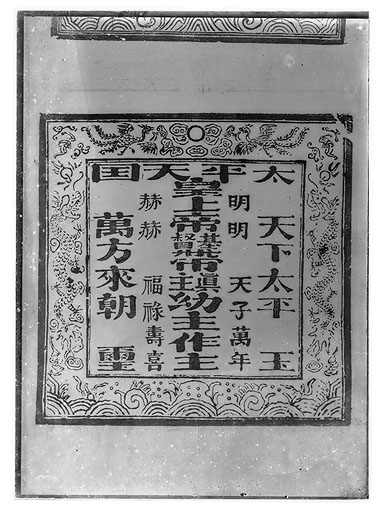 太平天国
天下太平
明明
天子萬年
皇上帝基督帶瑱幼主作主
赫赫
福祿壽喜
萬方來朝
玉璽